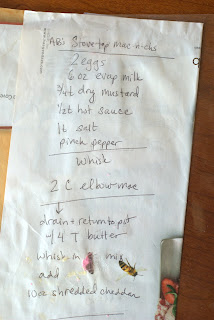 AB's Stove-top mac-n-chs
2 eggs
6 oz evap milk
3/4 t dry mustard
1/2 t hot sauce
1 t salt
pinch pepper
Whisk
2 C elbow mac
drain + return to pot
4 T butter
whisk in mix
add
10 oz shredded cheddar